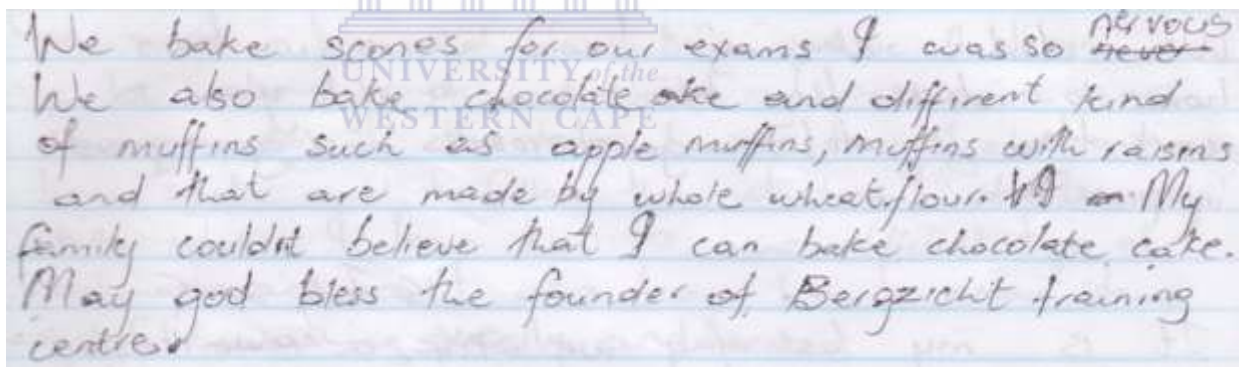 We bake scones for our exams I was so nervous
We also bake chocolate cake and diffirent kind
of muffins such as apple muffins, muffins with raisins
and that are made by whole wheat flour. My
family couldnt believe that I can bake chocolate cake.
May god bless the founder of Bergzicht training
centre.
UNIVERSITY of the
WESTERN CAPE